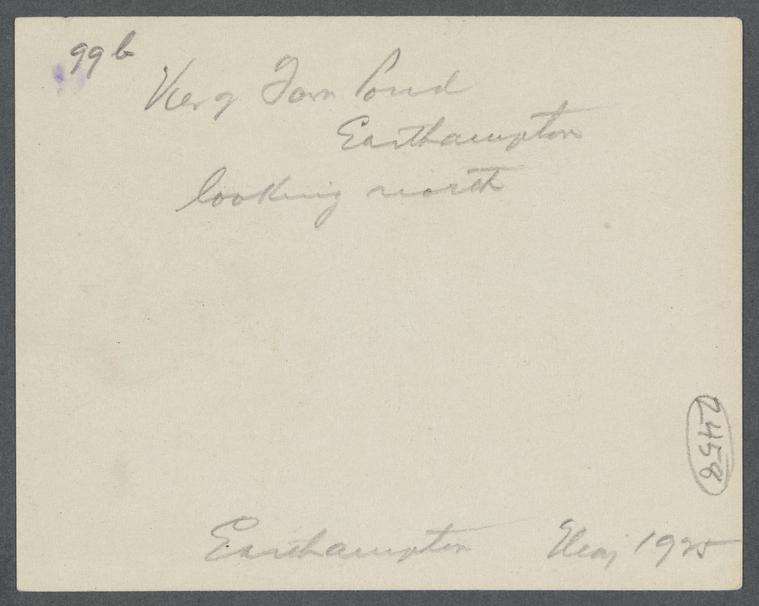 99 b
View of Town Pond
Easthampton
looking north
2458
Easthampton 1925